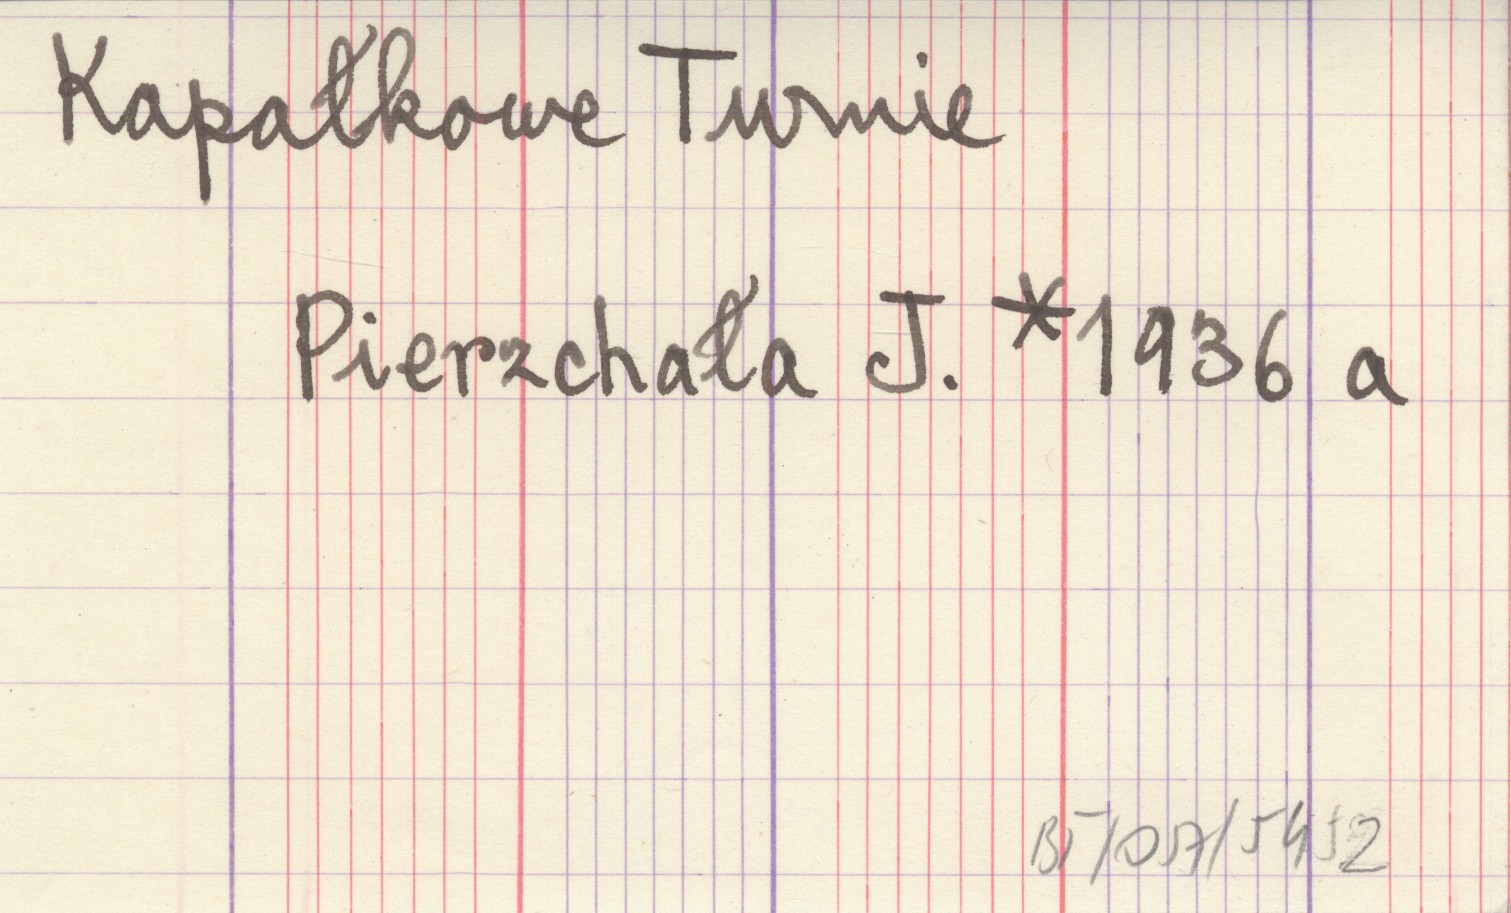 Kapałkowe Turnie
Pierzchała J. *1936 a
BT/057/5452